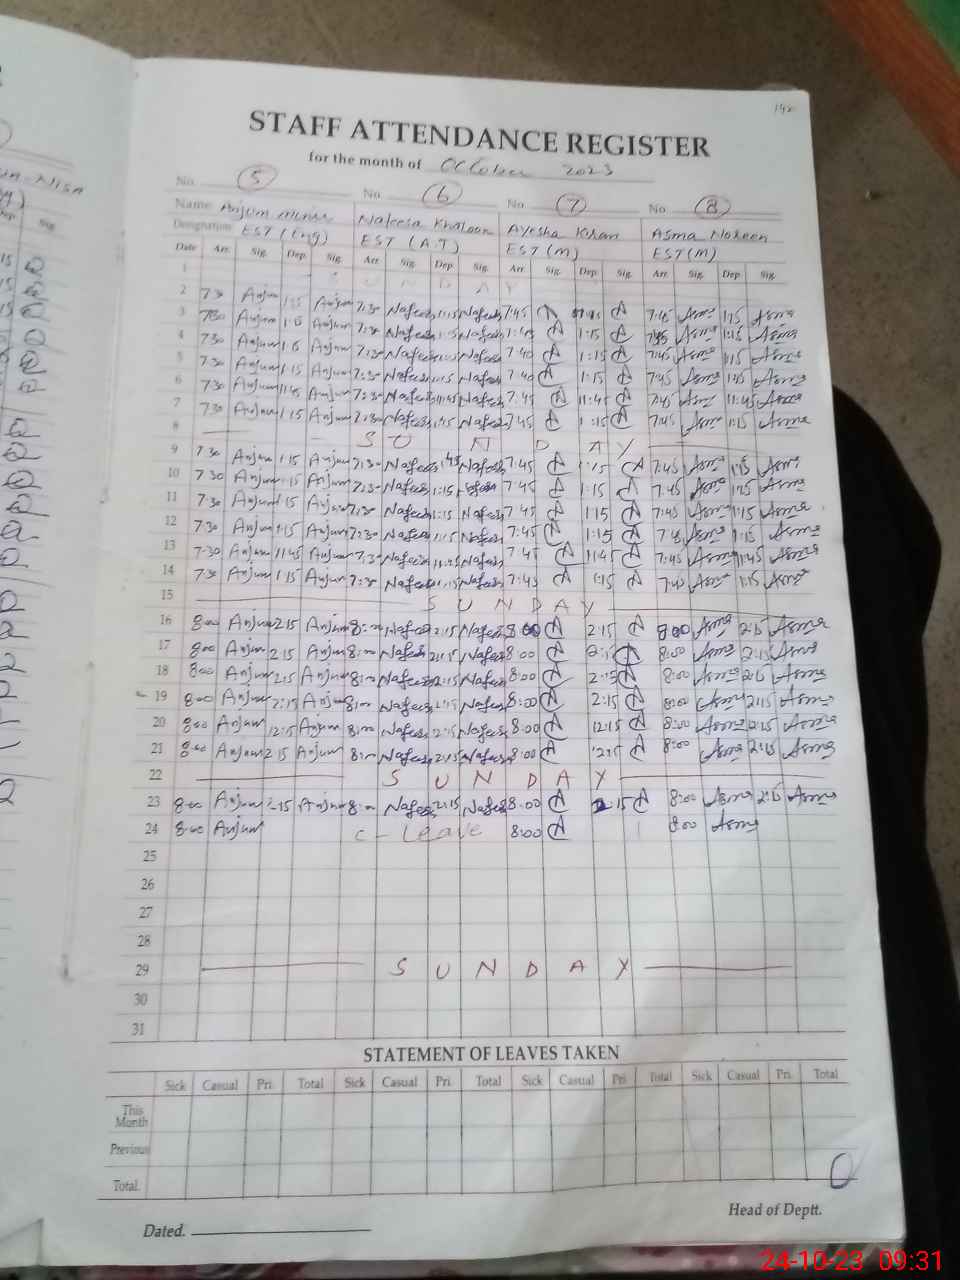 142
STAFF ATTENDANCE REGISTER
for the month of October 2023
No. 5 No. 6 No. 7 No. 8
Name Anjum Nafeesa Khatoon Ayesha Kiran Asma Noreen
Designation EST (Eng) EST (A.T) EST (M) EST (M)
Date Arr. Sig. Dep. Sig. Arr. Sig. Dep. Sig. Arr. Sig. Dep. Sig. Arr. Sig. Dep. Sig.
1 S U N D A Y
2 7:30 Anjum 1:15 Anjum 7:30 Nafeesa 1:15 Nafeesa 7:45 A A 7:45 Asma 1:15 Asma
3 7:30 Anjum 1:15 Anjum 7:30 Nafeesa 1:15 Nafeesa A 1:15 A 7:45 Asma 1:15 Asma
4 7:30 Anjum 1:15 Anjum 7:30 Nafeesa 1:15 Nafeesa 7:40 A 1:15 A 7:45 Asma 1:15 Asma
5 7:30 Anjum 1:15 Anjum 7:30 Nafeesa 1:15 Nafeesa 7:40 A 1:15 A 7:45 Asma Asma
6 7:30 Anjum 11:45 Anjum 7:30 Nafeesa 11:45 Nafeesa 7:45 A 11:45 A 7:45 Asma 11:45 Asma
7 7:30 Anjum 1:15 Anjum 7:30 Nafeesa 1:15 Nafeesa 7:45 A 1:15 A 7:45 Asma 1:15 Asma
8 S U N D A Y
9 7:30 Anjum 1:15 Anjum 7:30 Nafeesa Nafeesa 7:45 A 1:15 A 7:45 Asma 1:15 Asma
10 7:30 Anjum 1:15 Anjum 7:30 Nafeesa 1:15 Nafeesa 7:45 A 1:15 A 7:45 Asma 1:15 Asma
11 7:30 Anjum 1:15 Anjum 7:30 Nafeesa 1:15 Nafeesa 7:45 A 1:15 A 7:45 Asma 1:15 Asma
12 7:30 Anjum 1:15 Anjum 7:30 Nafeesa 1:15 Nafeesa 7:45 A 1:15 A 7:45 Asma 1:15 Asma
13 7:30 Anjum 11:45 Anjum 7:30 Nafeesa 11:45 Nafeesa 7:45 A 11:45 A 7:45 Asma 11:45 Asma
14 7:30 Anjum 1:15 Anjum 7:30 Nafeesa 1:15 Nafeesa 7:45 A 1:15 A 7:45 Asma 1:15 Asma
15 S U N D A Y
16 8:00 Anjum 2:15 Anjum 8:00 Nafeesa 2:15 Nafeesa 8:00 A 2:15 A 8:00 Asma 2:15 Asma
17 8:00 Anjum 2:15 Anjum 8:00 Nafeesa 2:15 Nafeesa 8:00 A 2:15 A 8:00 Asma 2:15 Asma
18 8:00 Anjum 2:15 Anjum 8:00 Nafeesa 2:15 Nafeesa 8:00 A 2:15 A 8:00 Asma 2:15 Asma
19 8:00 Anjum 2:15 Anjum 8:00 Nafeesa 2:15 Nafeesa 8:00 A 2:15 A 8:00 Asma 2:15 Asma
20 8:00 Anjum 12:15 Anjum 8:00 Nafeesa 12:15 Nafeesa 8:00 A 12:15 A 8:00 Asma 12:15 Asma
21 8:00 Anjum 2:15 Anjum 8:00 Nafeesa 2:15 Nafeesa 8:00 A 2:15 A 8:00 Asma 2:15 Asma
22 S U N D A Y
23 8:00 Anjum 2:15 Anjum 8:00 Nafeesa 2:15 Nafeesa 8:00 A 2:15 A 8:00 Asma 2:15 Asma
24 8:00 Anjum C-Leave 8:00 A 8:00 Asma
25
26
27
28
29 S U N D A Y
30
31
STATEMENT OF LEAVES TAKEN
Sick Casual Pri. Total Sick Casual Pri. Total Sick Casual Pri. Total Sick Casual Pri. Total
This Month
Previous
Total
Dated.
Head of Deptt.
24-10-23 09:31